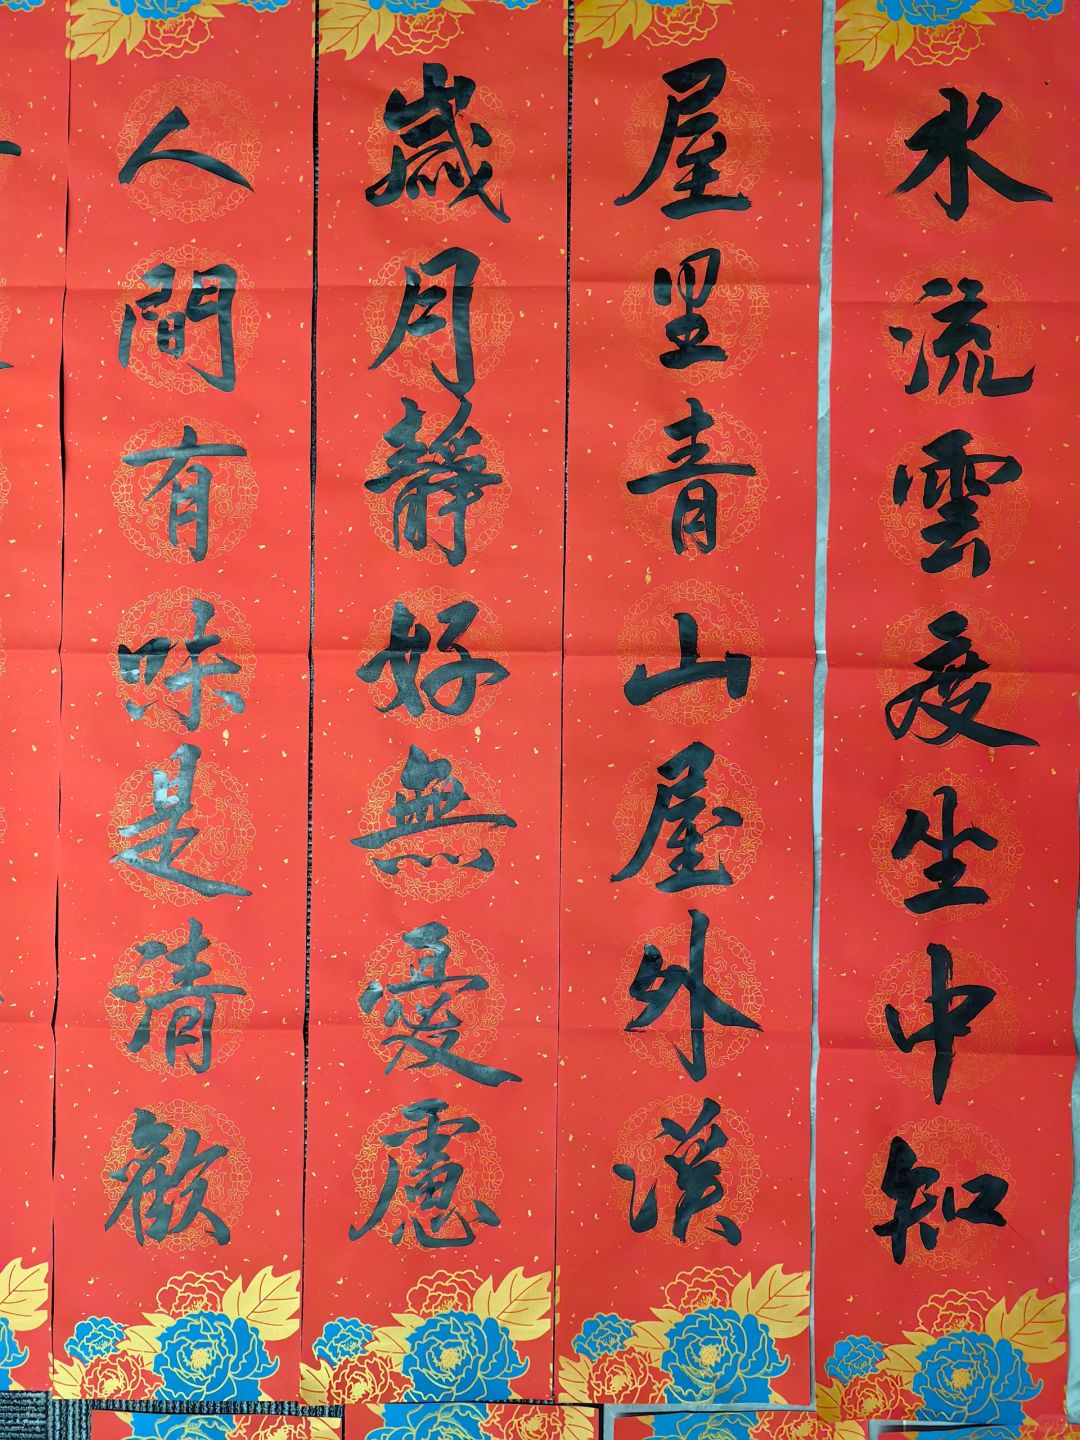 水流雲度坐中知
屋里青山屋外溪
歲月靜好無憂慮
人間有味是清歡